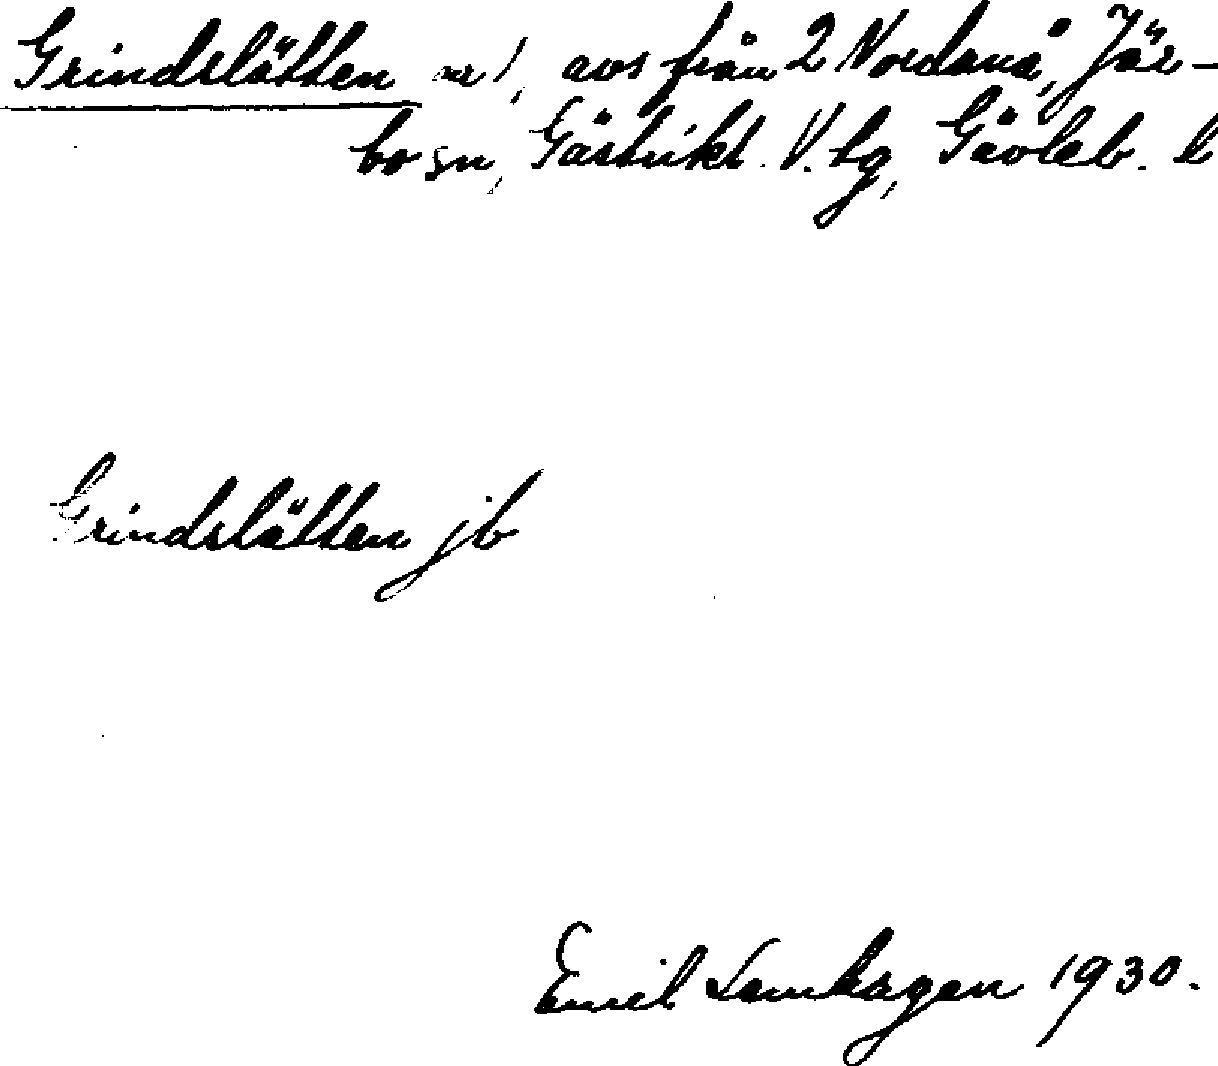 Grindslätten nr 1, avs från 2 Nordanå, Jär-
bo sn, Gästrikl. V. tg, Gävleb. l
Grindslätten jb
Emil 1930.